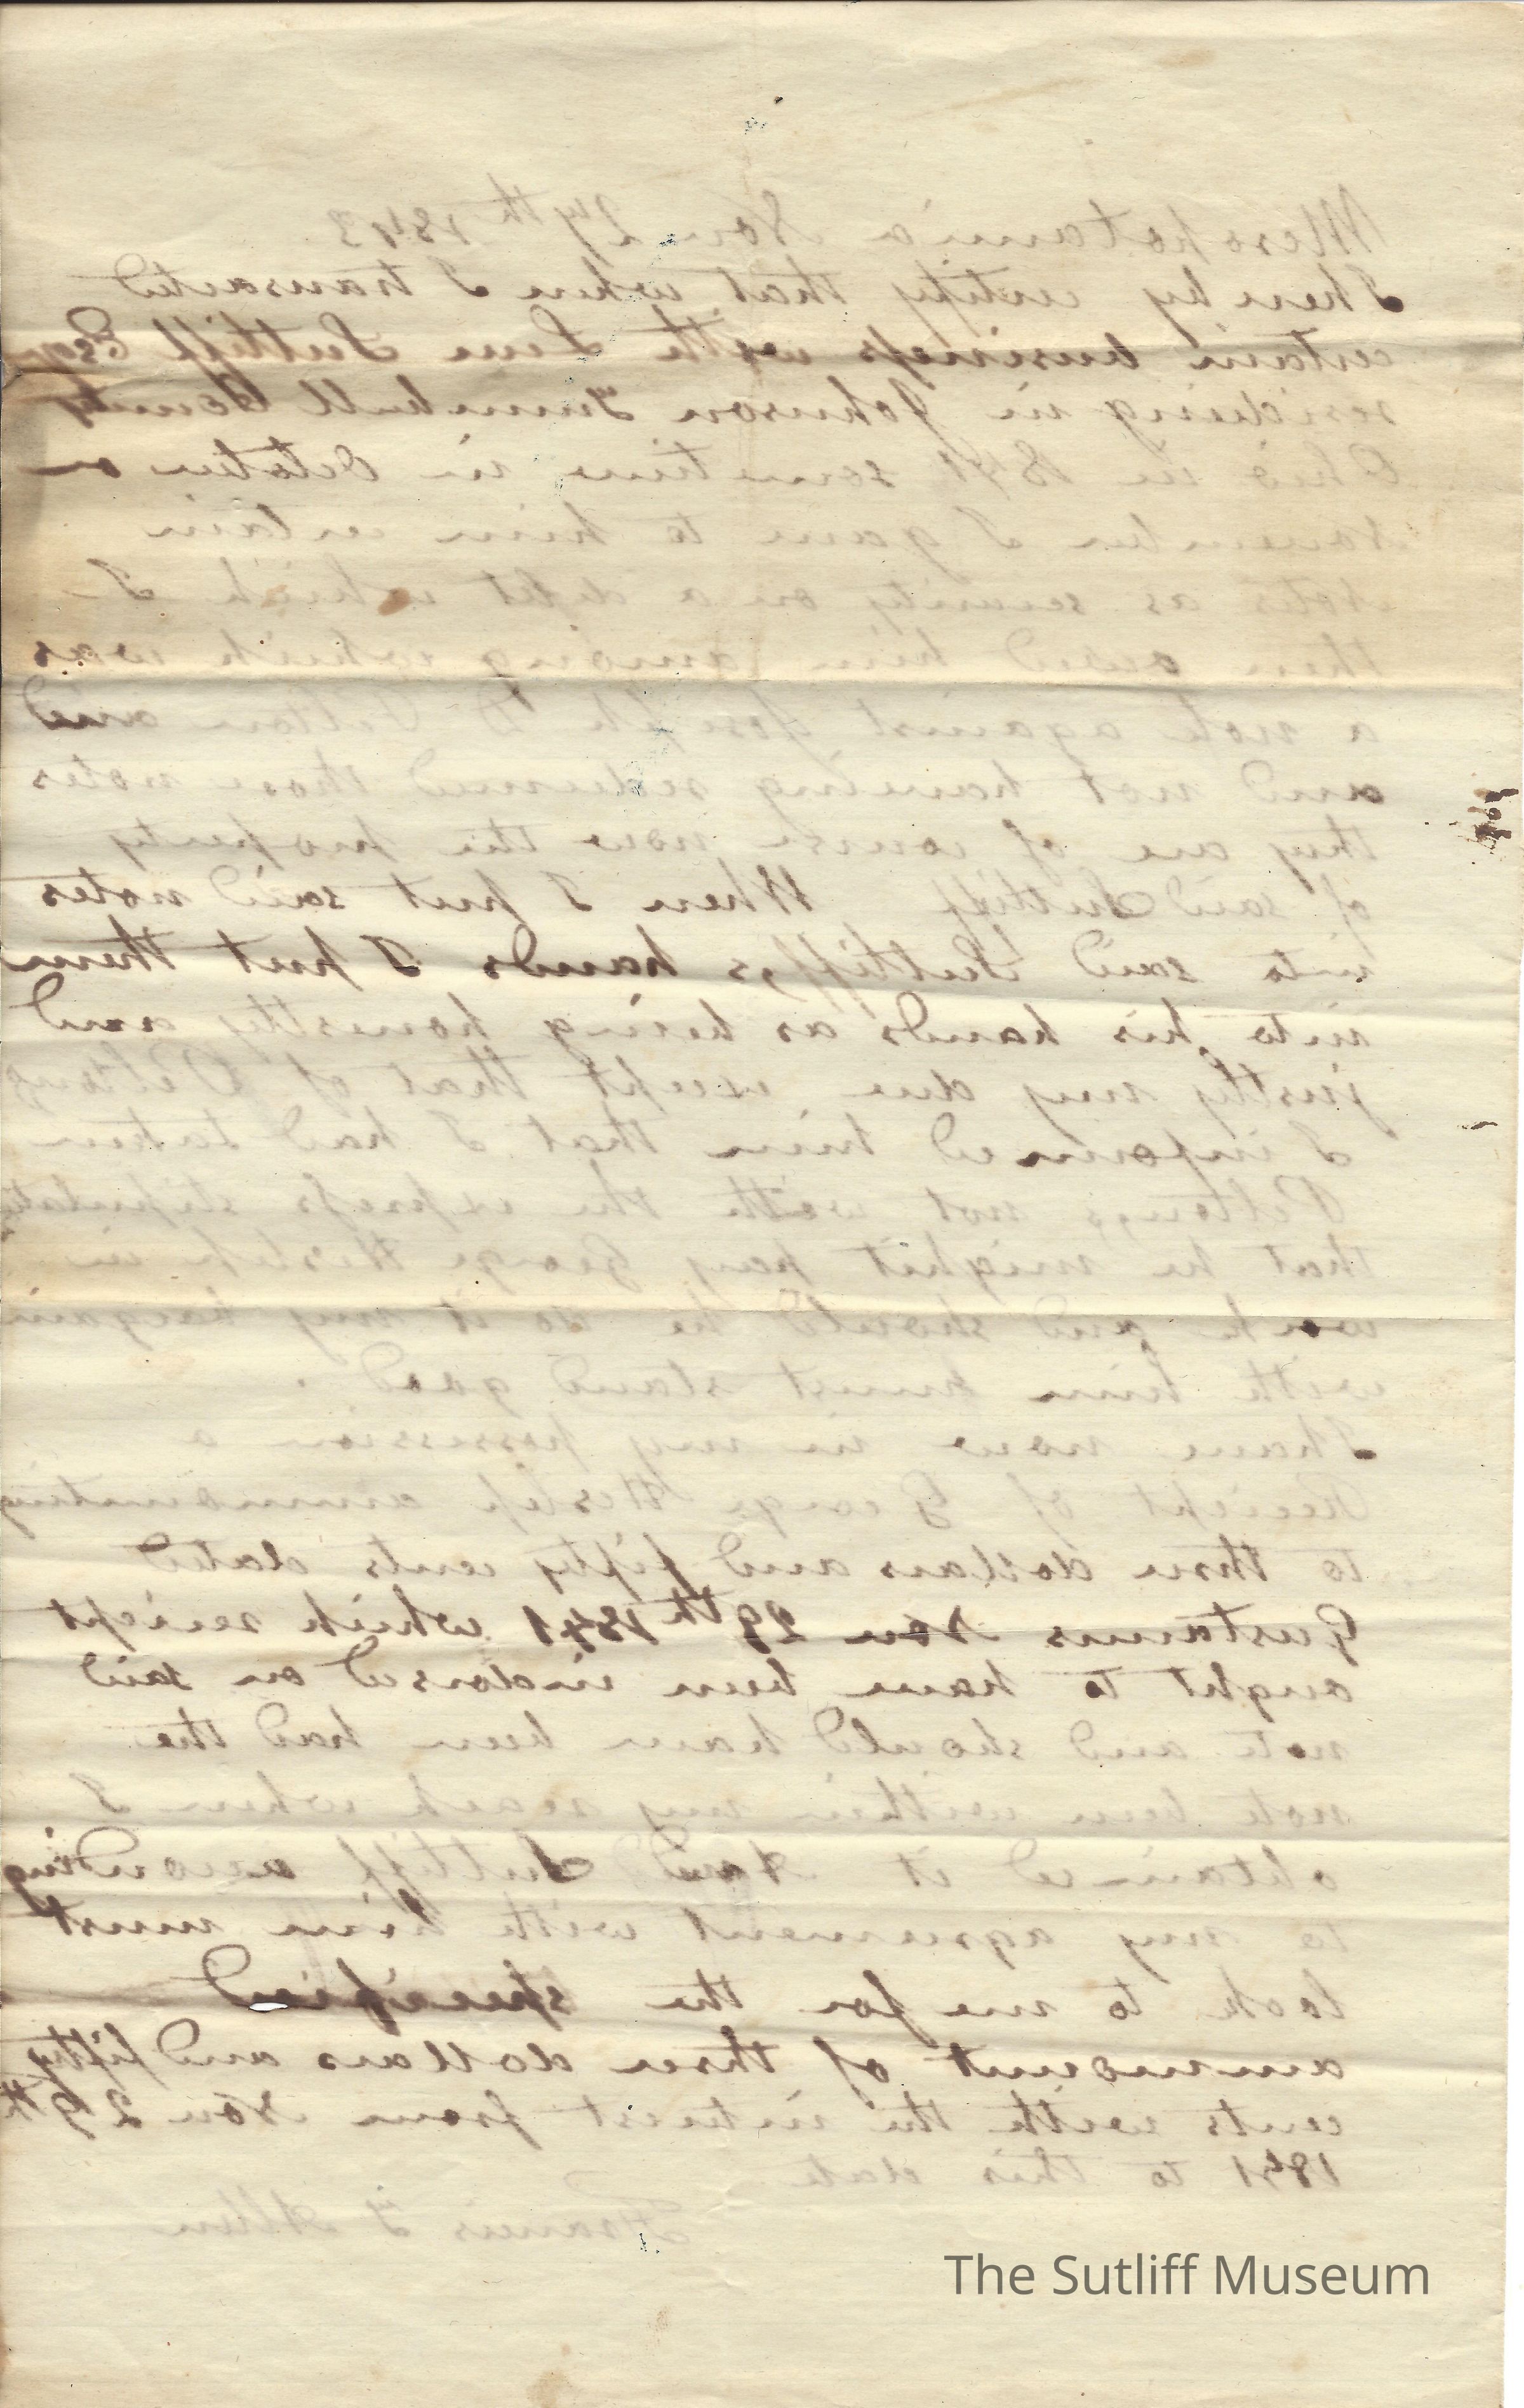 Mesopotamia Nov 27th 1843
I here by certify that when I transacted
certain business with Levi Sutliff Esq
residing in Johnson Trumbull County
Ohio in 1841 some time in October or
November I gave to him certain
Notes as security on a debt which I
then owed him among which was
a note against Joseph D Pelton and
and not having redeemed those notes
they are of course now the property
of said Sutliff When I put said notes
into said Sutliff,s hands I put them
into his hands as being honestly and
justly my due except that of Peltons
I informed him that I had taken
Pelton,s not with the express stipulati
that he might pay George Heslep in
work and should he do it my bargain
with him must stand good
I have now in my possession a
Receipt of George Heslep ammounting
to three dollars and fifty cents dated
Gustavus Nov 29th 1841 which reciept
ought to have been indorsed on said
note and should have been had the
note been within my reach when I
obtained it And Sutliff according
to my agreement with him must
look to me for the specified
ammount of three dollars and fifty
cents with the interest from Nov 29th
1841 to this date
Francis Allen
The Sutliff Museum